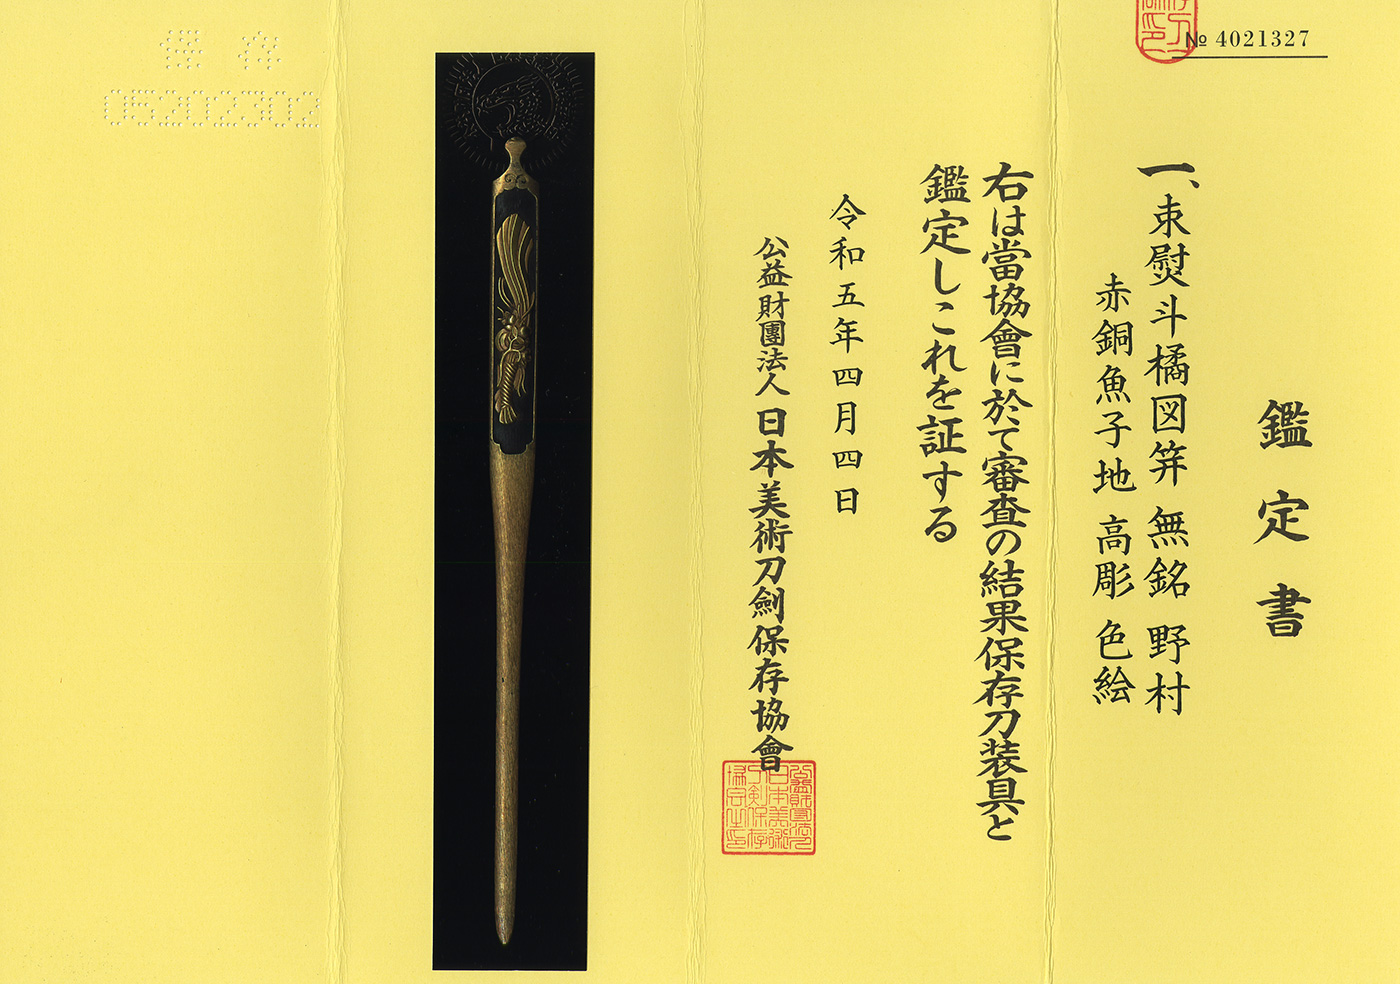 № 4021327
鑑定書
一、束熨斗橘図笄 無銘 野村
赤銅魚子地 高彫 色絵
右は當協會に於て審査の結果保存刀装具と
鑑定しこれを証する
令和五年四月四日
公益財團法人 日本美術刀劍保存協會
保存
05202302